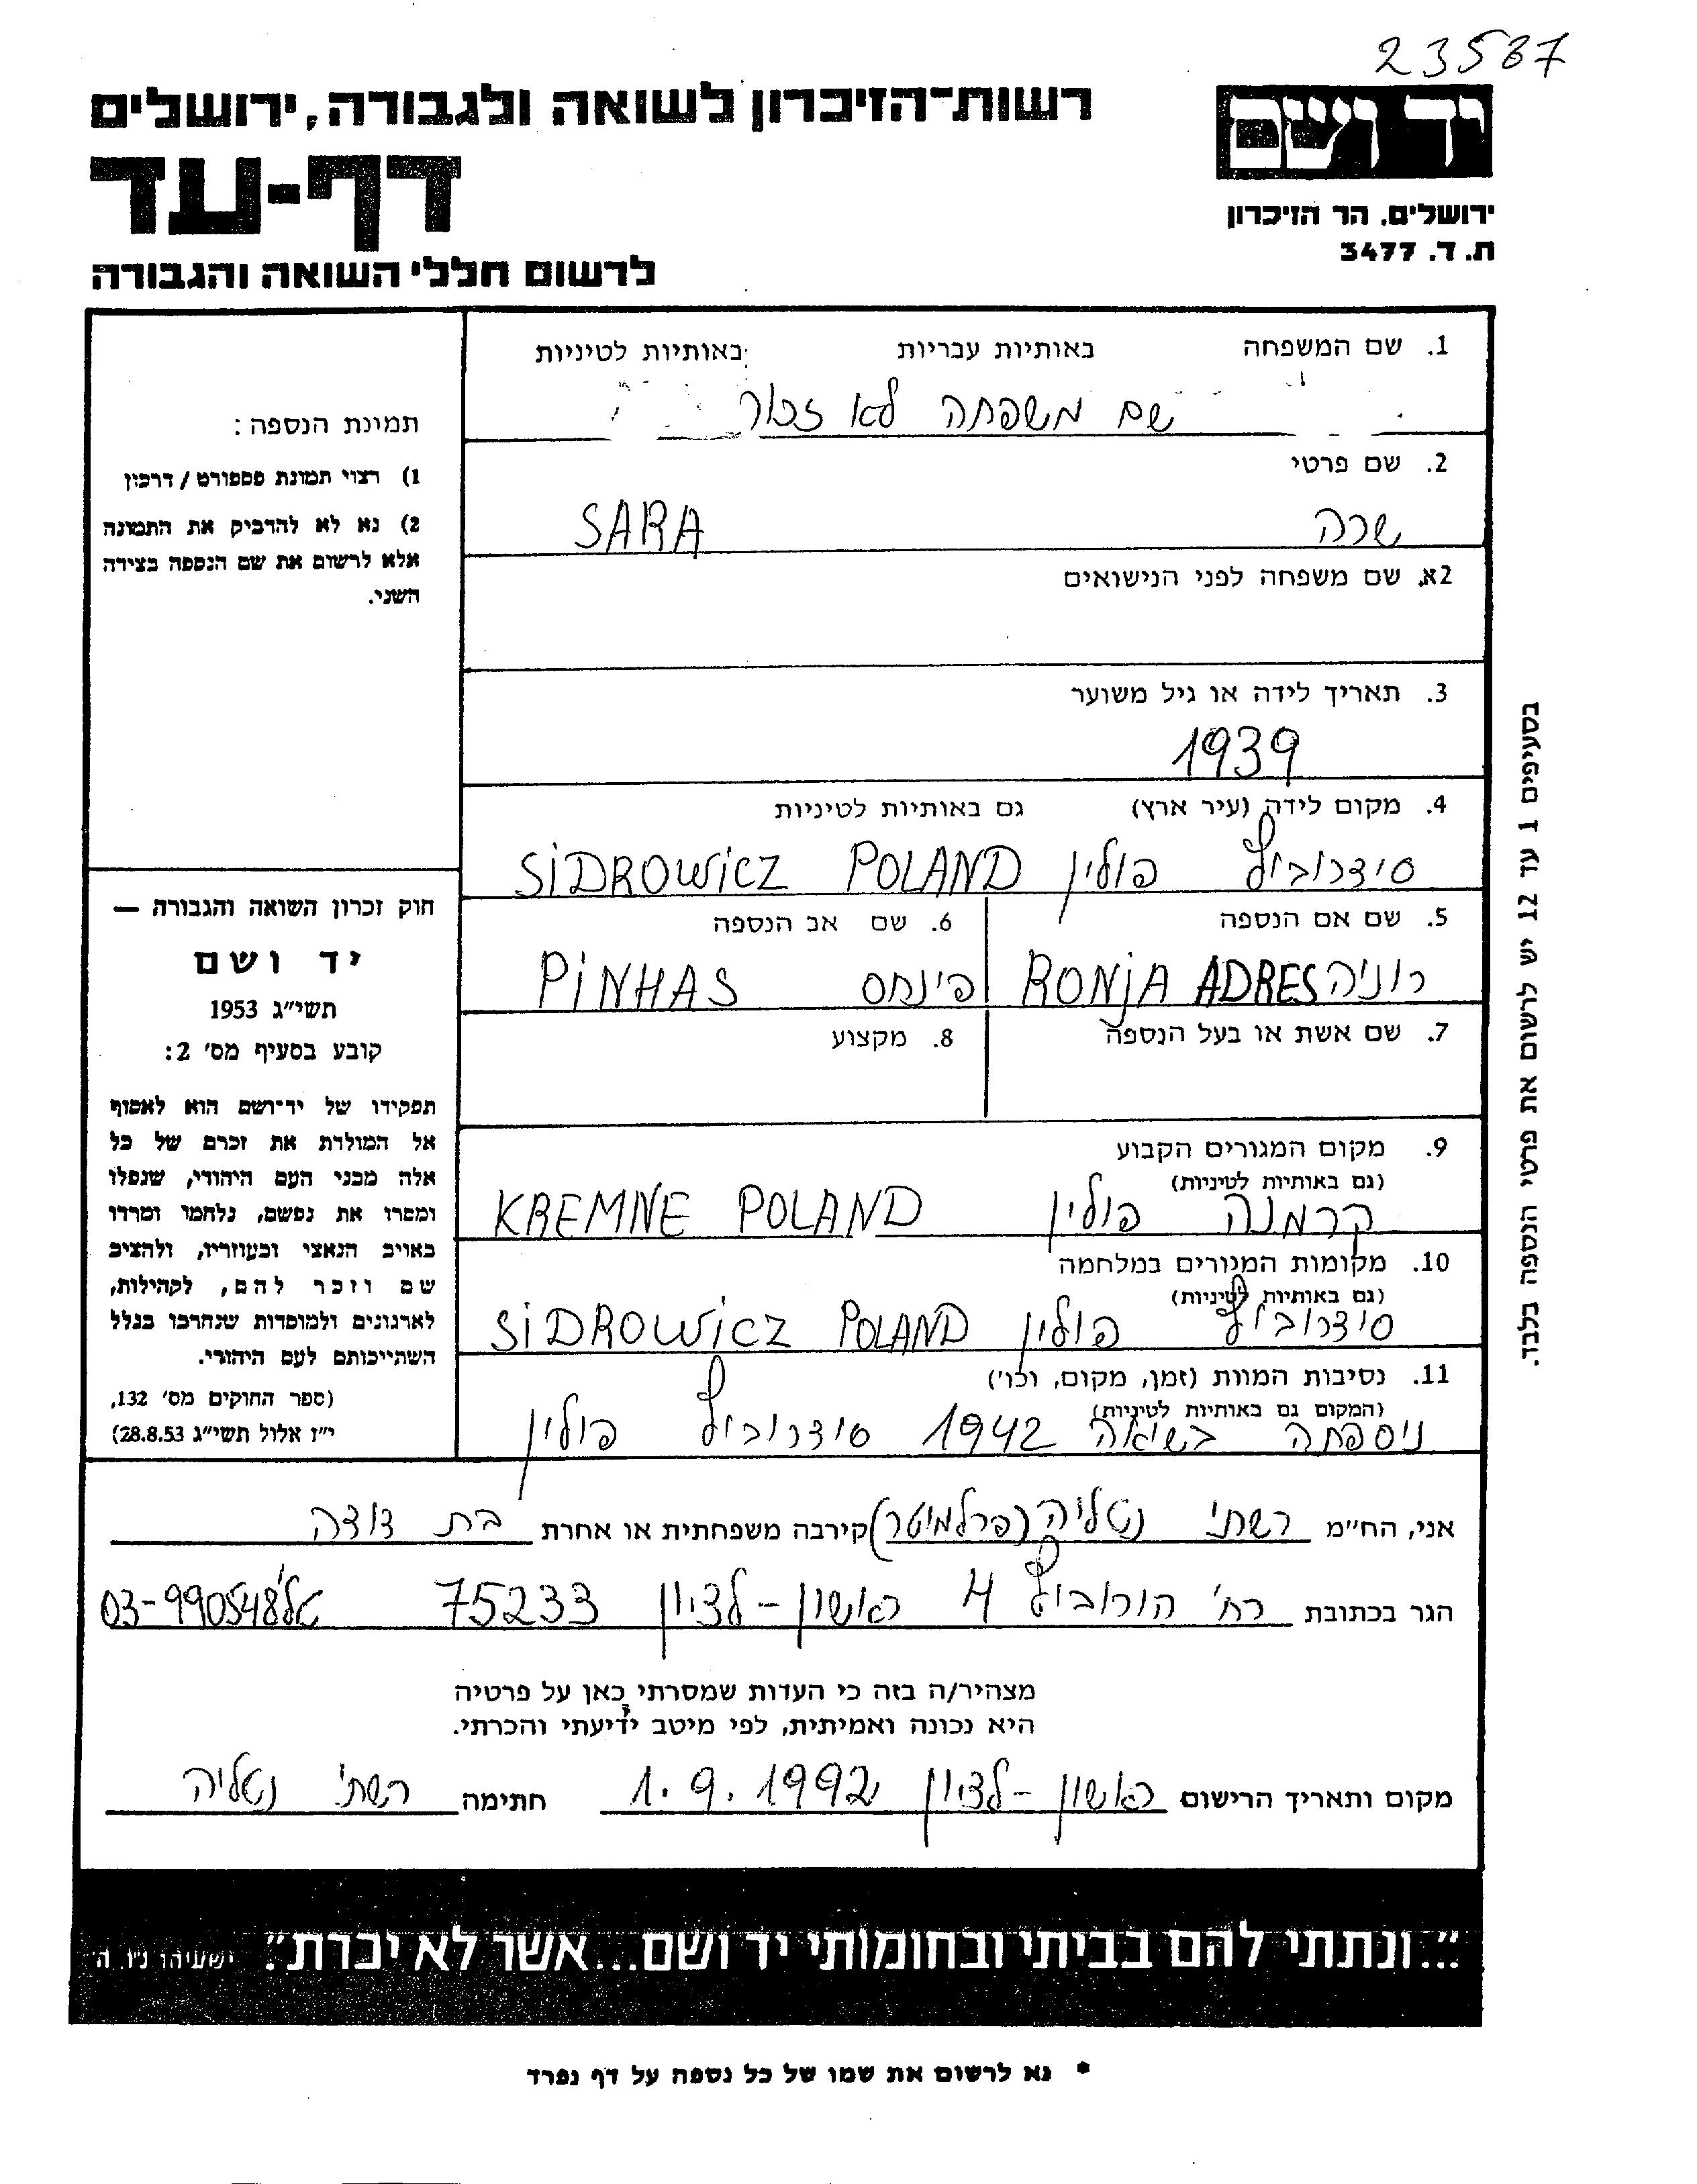 23587
יד ושם
ירושלים, הר הזיכרון
ת.ד. 3477
רשות־הזיכרון לשואה ולגבורה, ירושלים
דף-עד
לרשום חללי השואה והגבורה
1. שם המשפחה באותיות עבריות באותיות לטיניות
שם משפחה לא זכור
2. שם פרטי
שרה SARA
2א. שם משפחה לפני הנישואים
3. תאריך לידה או גיל משוער
1939
4. מקום לידה (עיר ארץ) גם באותיות לטיניות
סידרוביץ פולין SIDROWICZ POLAND
5. שם אם הנספה 6. שם אב הנספה
רוניה RONJA ADRES פינחס PINHAS
7. שם אשת או בעל הנספה 8. מקצוע
9. מקום המגורים הקבוע
(גם באותיות לטיניות)
קרמנה פולין KREMNE POLAND
10. מקומות המגורים במלחמה
(גם באותיות לטיניות)
סידרוביץ פולין SIDROWICZ POLAND
11. נסיבות המוות (זמן, מקום, וכו')
(המקום גם באותיות לטיניות)
ניספתה בשואה 1942 סידרוביץ פולין
תמונת הנספה:
1) רצוי תמונת פספורט / דרכון
2) נא לא להדביק את התמונה
אלא לרשום את שם הנספה בצידה
השני.
חוק זכרון השואה והגבורה —
יד ושם
תשי"ג 1953
קובע בסעיף מס' 2:
תפקידו של יד־ושם הוא לאסוף
אל המולדת את זכרם של כל
אלה מבני העם היהודי, שנפלו
ומסרו את נפשם, נלחמו ומרדו
באויב הנאצי ובעוזריו, ולהציב
שם וזכר להם, לקהילות,
לארגונים ולמוסדות שנחרבו בגלל
השתייכותם לעם היהודי.
(ספר החוקים מס' 132,
י"ז אלול תשי"ג 28.8.53)
בסעיפים 1 עד 12 יש לרשום את פרטי הנספה בלבד.
אני, הח"מ רשתי נטליה (פרלמוטר) קירבה משפחתית או אחרת בת דודה
הגר בכתובת רח' הורוביץ 4 ראשון-לציון 75233 טל' 03-990548
מצהיר/ה בזה כי העדות שמסרתי כאן על פרטיה
היא נכונה ואמיתית, לפי מיטב ידיעתי והכרתי.
מקום ותאריך הרישום ראשון-לציון 1.9.1992 חתימה רשתי נטליה
"...ונתתי להם בביתי ובחומותי יד ושם...אשר לא יכרת" ישעיהו נ"ו, ה'
* נא לרשום את שמו של כל נספה על דף נפרד